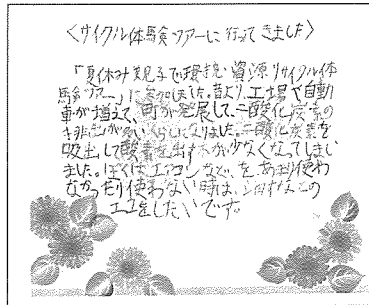 <サイクル体験ツアーに行ってきました>
「夏休み親子で環境・資源リサイクル体
験ツアー」に参加しました。昔より、工場や自動
車が増えて、町が発展して、二酸化炭素の
排出が多くなりました。二酸化炭素を
吸出して酸素を出す木が少なくなってしまい
ました。ぼくはエアコンなどを、あまり使わ
なかったり使わない時は、消すなどの
工夫をしたいです。